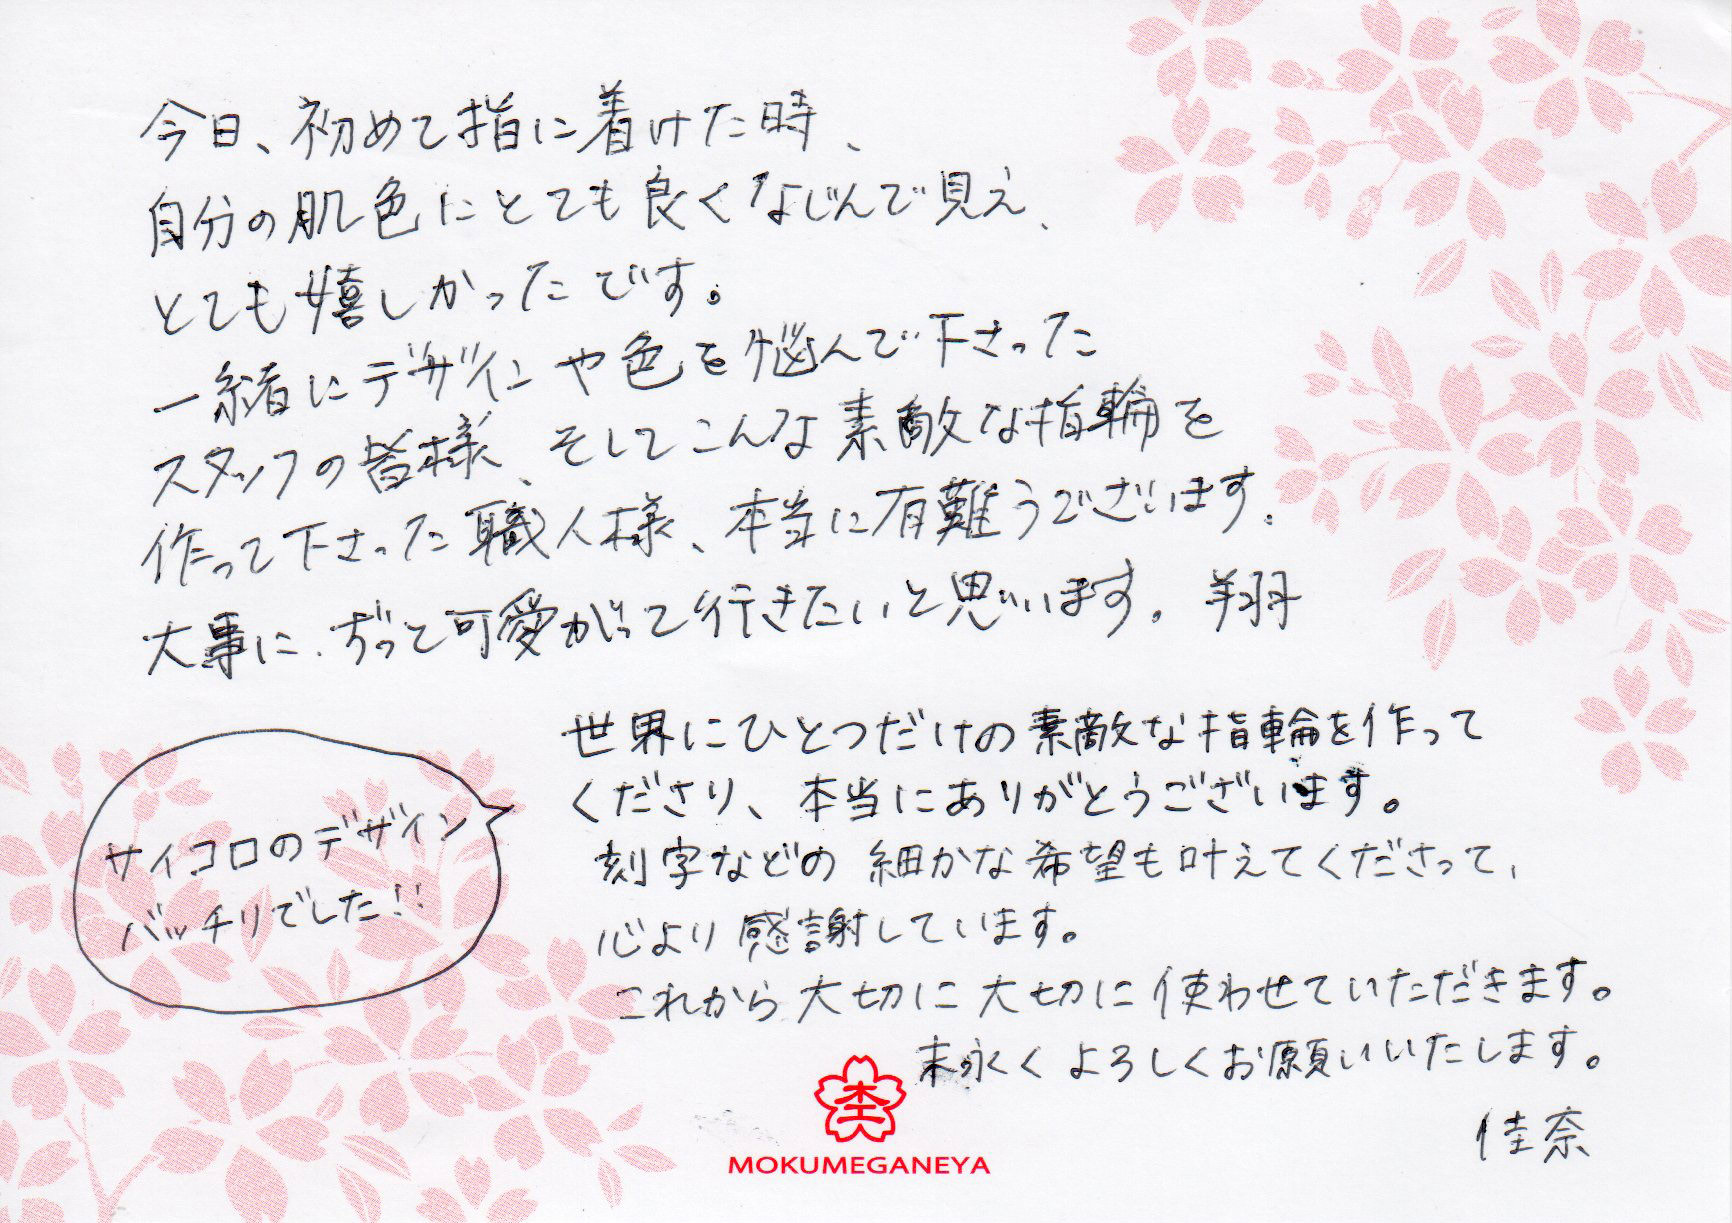 今日、初めて指に着けた時、
自分の肌色にとても良くなじんで見え、
とても嬉しかったです。
一緒にデザインや色を悩んで下さった
スタッフの皆様、そしてこんな素敵な指輪を
作って下さった職人様、本当に有難うございます。
大事に、ずっと可愛がって行きたいと思います。 翔
世界にひとつだけの素敵な指輪を作って
くださり、本当にありがとうございます。
刻字などの細かな希望も叶えてくださって、
心より感謝しています。
これから大切に大切に使わせていただきます。
末永くよろしくお願いいたします。
佳奈
サイコロのデザイン
バッチリでした!!
MOKUMEGANEYA